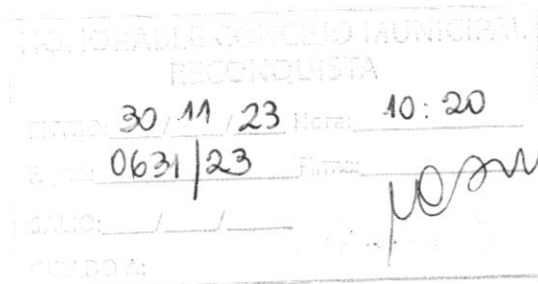 HONORABLE CONCEJO MUNICIPAL
RECONQUISTA
ENTRO: 30 / 11 / 23 Hora: 10:20
0631/23 Firma:
SALIO: / /
GIRADO A: